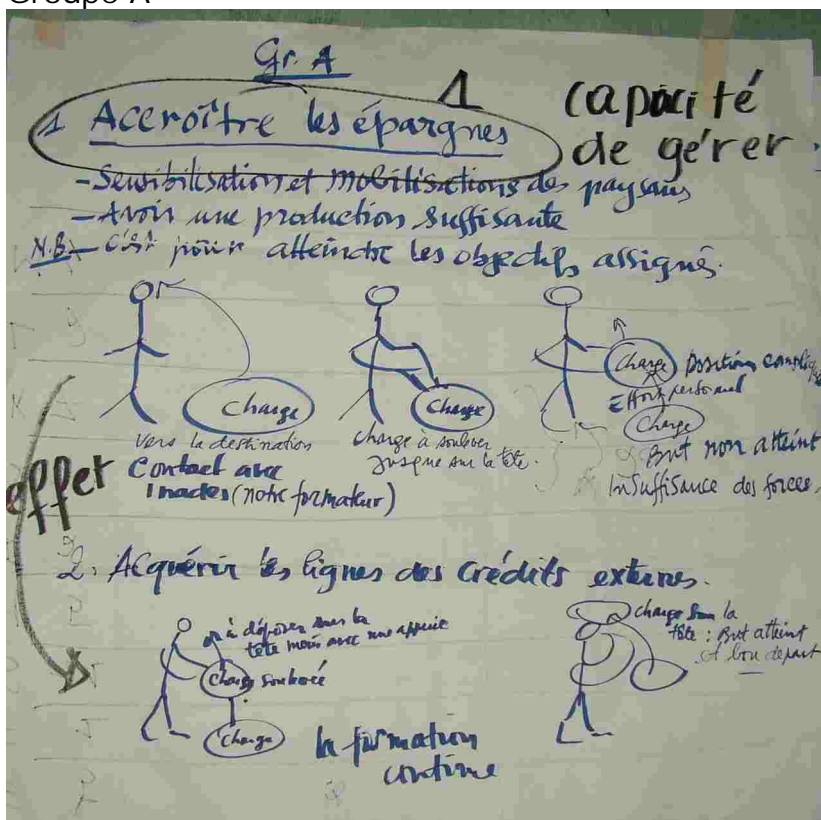 Groupe A
Gr. A
1
capacité
de gérer.
1 Accroître les épargnes
- Sensibilisation et mobilisations des paysans
- Avoir une production suffisante
N.B. - C'est pour atteindre les objectifs assignés.
Charge
vers la destination
Contact avec
Inades (notre formateur)
Charge
charge à soulever
jusque sur la tête.
Charge
position
Effort personnel
Charge
But non atteint
Insuffisance des forces.
effet
2. Acquérir les lignes des crédits externes.
à déposer sur la
tête mais avec une
Charge soulevée
Charge
la formation
continue
charge sur la
tête : But atteint
et bon départ